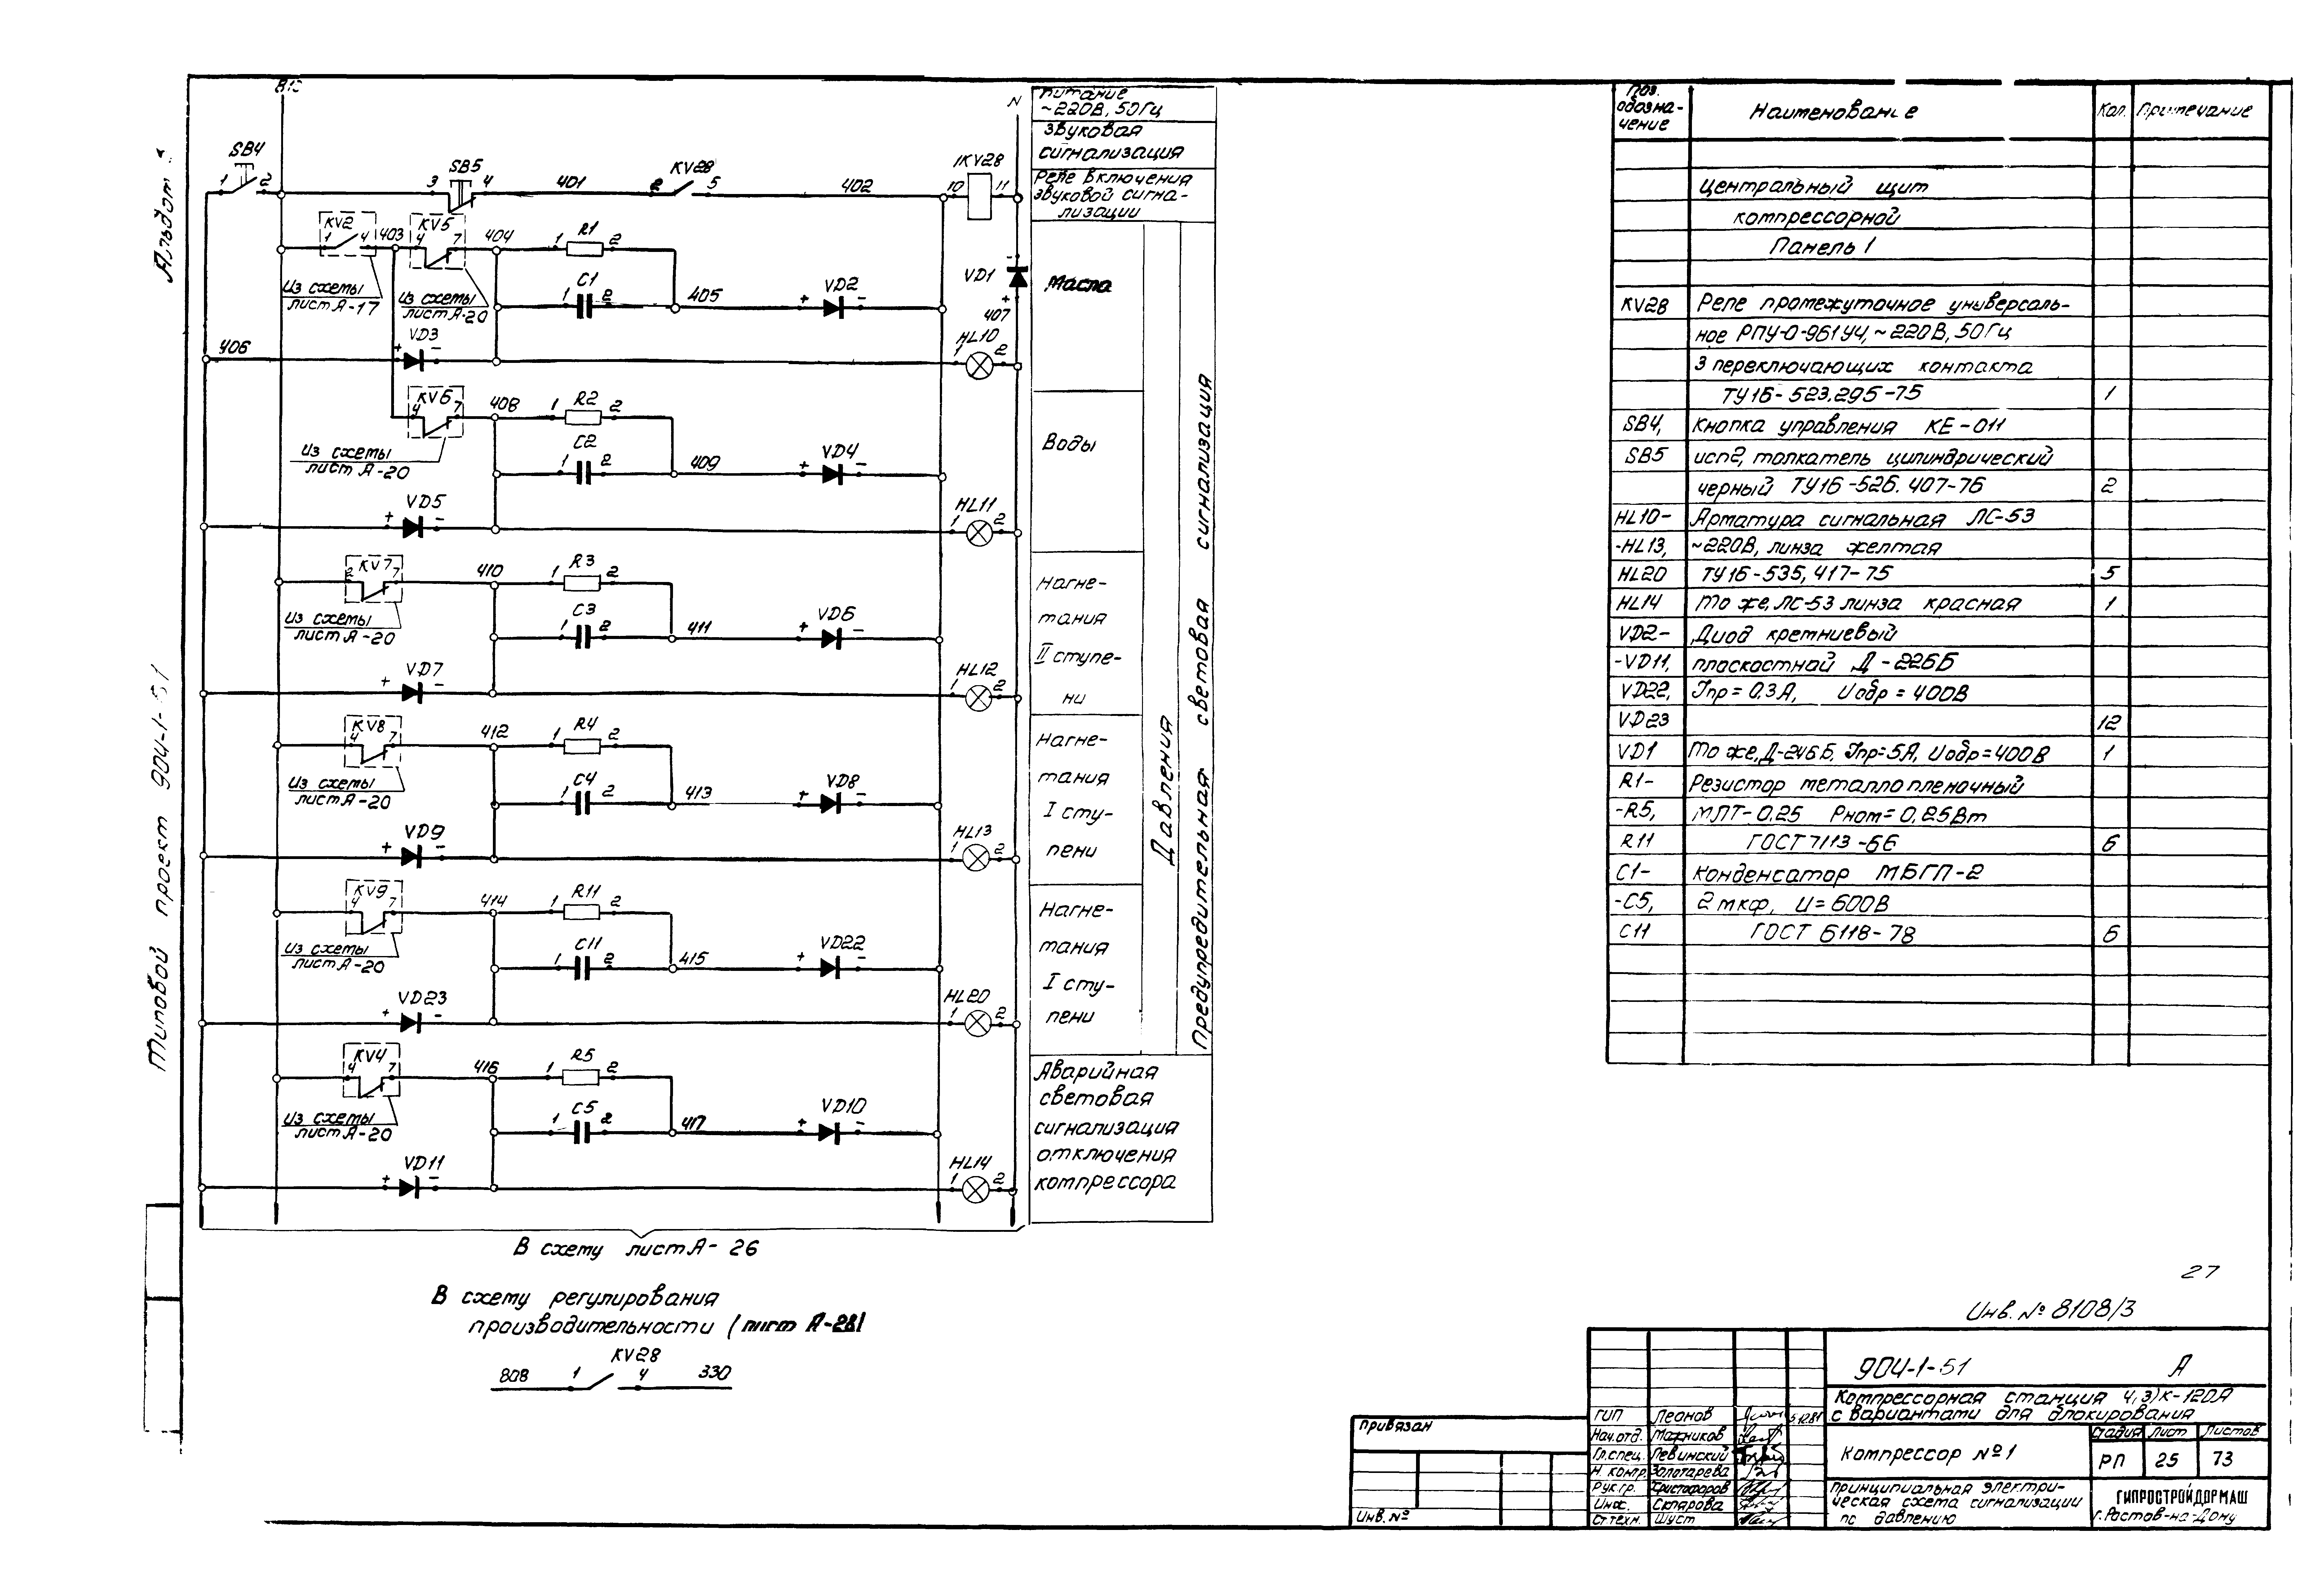 Типовой проект 904-1-51
Альбом
813
N
SB4
1 2
SB5
3 4
401
KV28
2 5
402
1KV28
10 11
KV2
1 4
403
KV5
4 7
404
R1
1 2
C1
1 2
405
VD2
+ -
VD1
-
+
407
Из схемы
лист А-17
Из схемы
лист А-20
406
VD3
+ -
HL10
1 2
KV6
4 7
408
R2
1 2
C2
1 2
409
VD4
+ -
Из схемы
лист А-20
VD5
+ -
HL11
1 2
KV7
2 7
410
R3
1 2
C3
1 2
411
VD6
+ -
Из схемы
лист А-20
VD7
+ -
HL12
1 2
KV8
4 7
412
R4
1 2
C4
1 2
413
VD8
+ -
Из схемы
лист А-20
VD9
+ -
HL13
1 2
KV9
4 7
414
R11
1 2
C11
1 2
415
VD22
+ -
Из схемы
лист А-20
VD23
+ -
HL20
1 2
KV4
4 7
416
R5
1 2
C5
1 2
417
VD10
+ -
Из схемы
лист А-20
VD11
+ -
HL14
1 2
В схему лист А-26
В схему регулирования
производительности (лист А-28)
808 1 KV28 4 330
Питание
~220В, 50Гц
Звуковая
сигнализация
Реле включения
звуковой сигна-
лизации
Масла
Воды
Нагне-
тания
II ступе-
ни
Нагне-
тания
I сту-
пени
Нагне-
тания
I сту-
пени
Давления
Предупредительная световая сигнализация
Аварийная
световая
сигнализация
отключения
компрессора
Поз. обозна-чение Наименование Кол. Примечание
Центральный щит
компрессорной
Панель 1
KV28 Реле промежуточное универсаль-
ное РПУ-0-961У4, ~220В, 50Гц
3 переключающих контакта
ТУ16-523.295-75 1
SB4, Кнопка управления КЕ-011
SB5 исп2, толкатель цилиндрический
черный ТУ16-526.407-76 2
HL10- Арматура сигнальная ЛС-53
-HL13, ~220В, линза желтая
HL20 ТУ16-535,417-75 5
HL14 То же, ЛС-53 линза красная 1
VD2- Диод кремниевый
-VD11, плоскостной Д-226Б
VD22, Iпр=0.3А, Uобр=400В
VD23 12
VD1 То же, Д-246Б, Iпр=5А, Uобр=400В 1
R1- Резистор металлопленочный
-R5, МЛТ-0,25 Рном=0,25Вт
R11 ГОСТ 7113-66 6
C1- Конденсатор МБГП-2
-C5, 2 мкф, U=600В
C11 ГОСТ 6118-78 6
27
Инв. № 8108/3
904-1-51 А
Компрессорная станция 4(3)К-120А
с вариантами для блокирования
Компрессор №1
Стадия Лист Листов
РП 25 73
Принципиальная электри-
ческая схема сигнализации
по давлению
ГИПРОСТРОЙДОРМАШ
г. Ростов-на-Дону
ГИП Леонов
Нач.отд. Мажников
Гл.спец. Левинский
Н. контр. Золотарева
Рук.гр. Христофоров
Инж. Склярова
Ст.техн. Шуст
Привязан
Инв. №